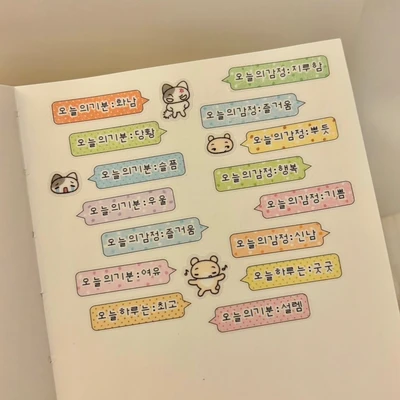 오늘의기분:화남
오늘의기분:당황
오늘의기분:슬픔
오늘의기분:우울
오늘의감정:즐거움
오늘의기분:여유
오늘하루는:최고
오늘의감정:지루함
오늘의감정:즐거움
오늘의감정:뿌듯
오늘의감정:행복
오늘의감정:기쁨
오늘의감정:신남
오늘하루는:굿굿
오늘의기분:설렘